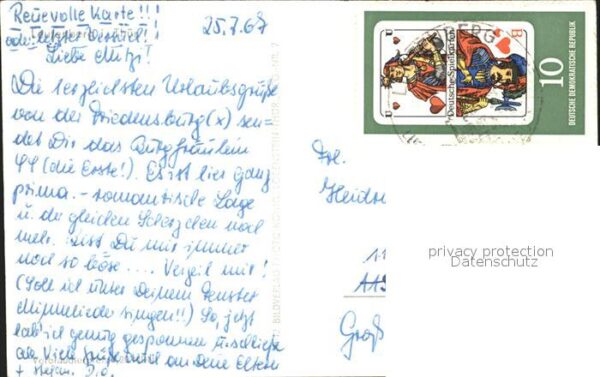 Reuevolle Karte!!!
oder letzter Versuch!
25.7.67
Liebe Mitzi!
Die herzlichsten Urlaubsgrüße
von der Friedensburg (x) sen-
det Dir das Burgfräulein
(die Erste!). Es ist hier ganz
prima. - romantische Lage
u. der gleichen Scherzchen noch
mehr. Bist Du mir immer
noch so böse.... Verzeih mir!
(Soll ich unter Deinem Fenster
Minnelieder singen!!) So, jetzt
hab' ich genug gesponnen u. schließe
Viele Grüße auch an Deine Eltern
+ Stefan. D. O.
U
U
B
Deutsche Spielkarten
10
DEUTSCHE DEMOKRATISCHE REPUBLIK
BERG
Frl.
Heidr
11
Groß
privacy protection
Datenschutz